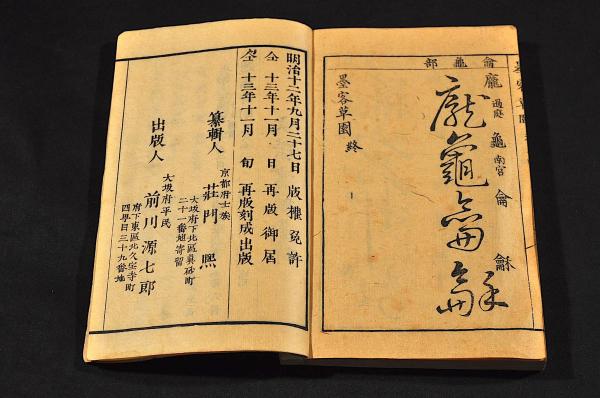 龠龜部
龐 過庭 龜 南宮 龠 龢
龐龜龠龢
墨客草園 終
明治十二年九月二十七日 版權免許
仝 十三年十一月 日 再版御届
仝 十三年十二月 旬 再版刻成出版
纂輯人
京都府士族
莊門熈
大坂府下北區真砂町
二十一番地寄留
出版人
大坂府平民
前川源七郎
府下東區北久宝寺町
四丁目三十九番地